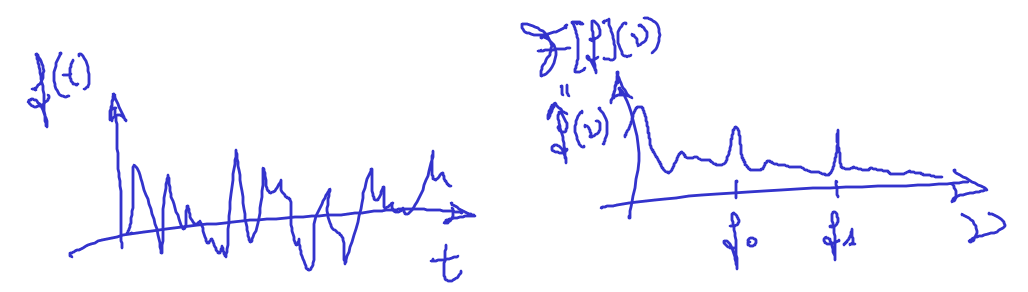 f(t)
t
ℱ[f](ν)
"
f̂(ν)
f₀
f₁
ν